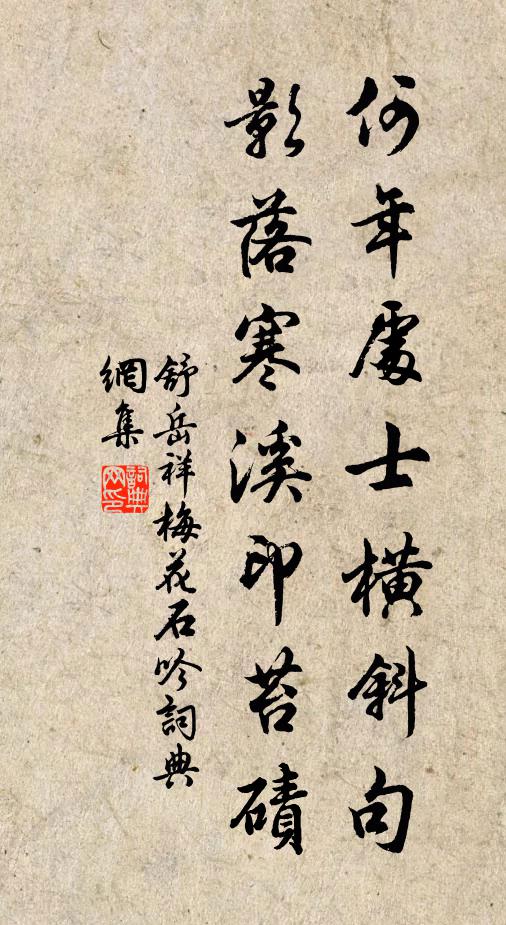 何年處士橫斜句
影落寒溪印苔磧
舒岳祥梅花石吟詞典
網集
詞典
网印